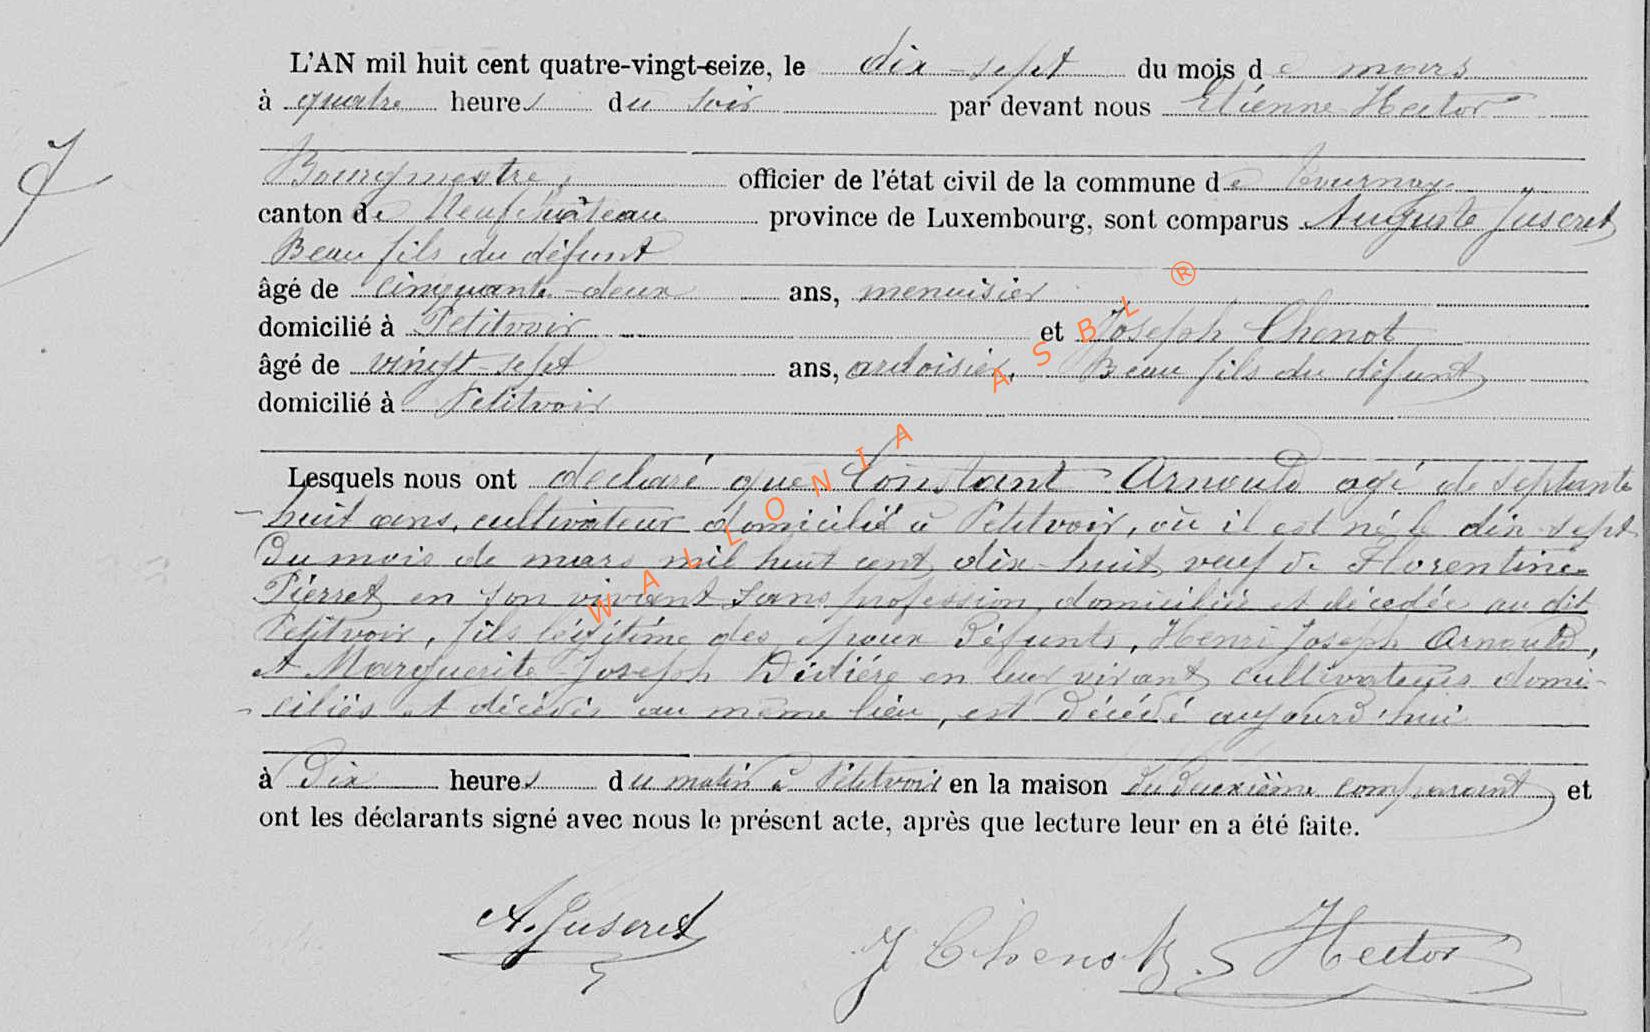 L'AN mil huit cent quatre-vingt-seize, le dix-sept du mois de mars
à quatre heures du soir par devant nous Etienne Hector
Bourgmestre, officier de l'état civil de la commune de Tournay
canton de Neufchâteau province de Luxembourg, sont comparus Auguste Juseret
Beau fils du défunt
âgé de cinquante-deux ans, menuisier
domicilié à Petitvoir et Joseph Chenot
âgé de vingt-sept ans, ardoisier, Beau fils du défunt
domicilié à Petitvoir
Lesquels nous ont déclaré que Constant Arnould agé de septante
huit ans, cultivateur domicilié à Petitvoir, où il est né le dix sept
du mois de mars mil huit cent dix-huit, veuf de Florentine
Pierret en son vivant sans profession domiciliée et décédée au dit
Petitvoir, fils légitime des époux défunts, Henri Joseph Arnould,
et Marguerite Joseph Didière en leur vivant cultivateurs domi-
ciliés et décédés au même lieu, est décédé aujourd'hui
à dix heures du matin à Petitvoir en la maison du deuxième comparant et
ont les déclarants signé avec nous le présent acte, après que lecture leur en a été faite.
A. Juseret
J Chenot
Hector
WALLONIA ASBL ®